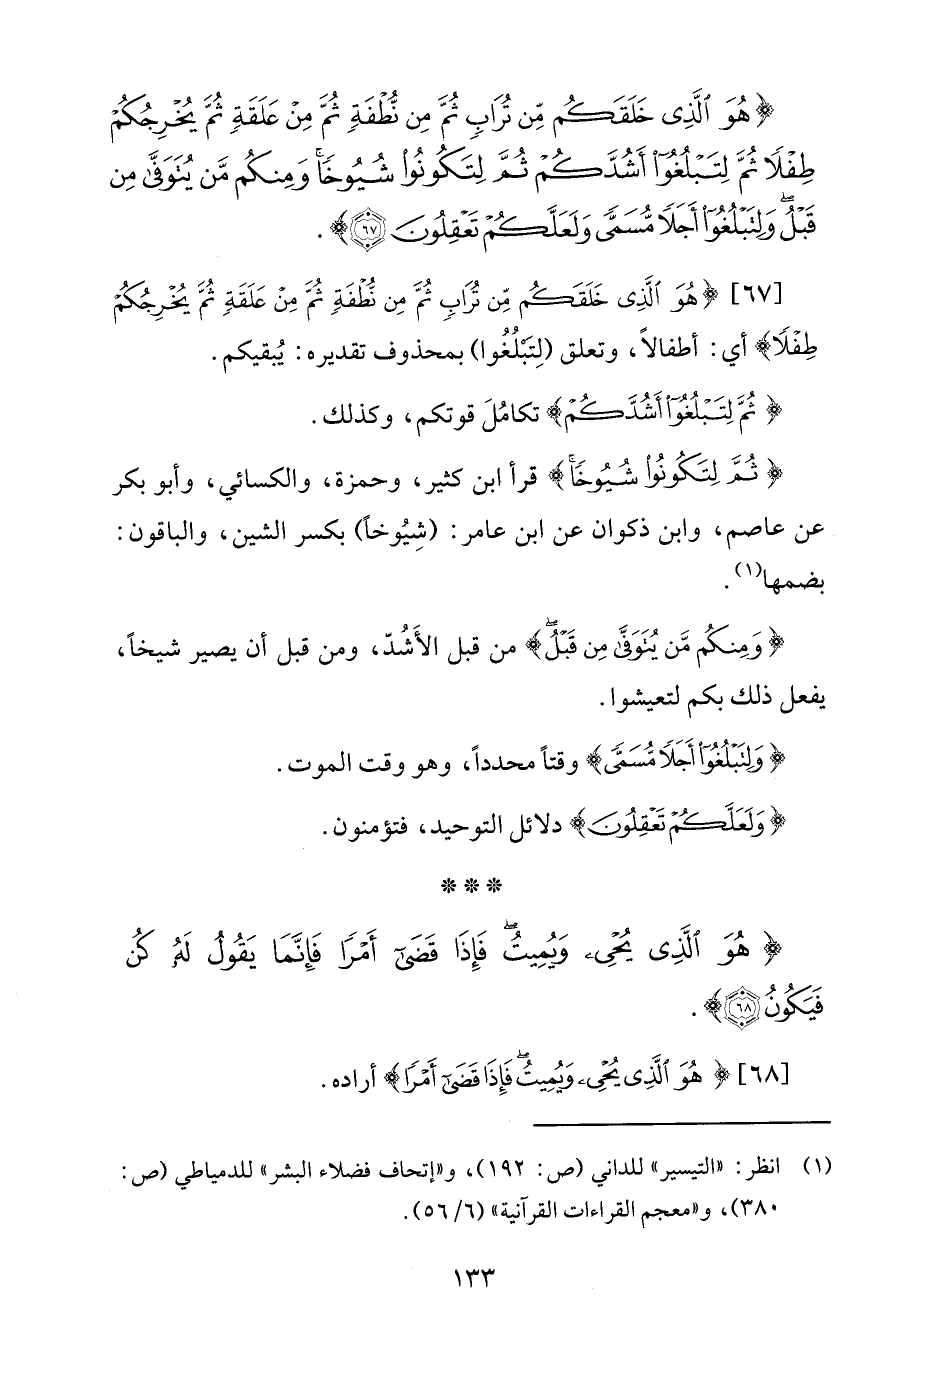 ﴿هُوَ ٱلَّذِى خَلَقَكُم مِّن تُرَابٍ ثُمَّ مِن نُّطْفَةٍ ثُمَّ مِنْ عَلَقَةٍ ثُمَّ يُخْرِجُكُمْ
طِفْلًا ثُمَّ لِتَبْلُغُوٓا۟ أَشُدَّكُمْ ثُمَّ لِتَكُونُوا۟ شُيُوخًا ۚ وَمِنكُم مَّن يُتَوَفَّىٰ مِن
قَبْلُ ۖ وَلِتَبْلُغُوٓا۟ أَجَلًا مُّسَمًّى وَلَعَلَّكُمْ تَعْقِلُونَ ٦٧﴾ .
[٦٧] ﴿هُوَ ٱلَّذِى خَلَقَكُم مِّن تُرَابٍ ثُمَّ مِن نُّطْفَةٍ ثُمَّ مِنْ عَلَقَةٍ ثُمَّ يُخْرِجُكُمْ
طِفْلًا﴾ أي: أطفالاً، وتعلق (لِتَبْلُغُوا) بمحذوف تقديره: يُبقيكم.
﴿ثُمَّ لِتَبْلُغُوٓا۟ أَشُدَّكُمْ﴾ تكامُلَ قوتكم، وكذلك.
﴿ثُمَّ لِتَكُونُوا۟ شُيُوخًا ۚ﴾ قرأ ابن كثير، وحمزة، والكسائي، وأبو بكر
عن عاصم، وابن ذكوان عن ابن عامر: (شِيُوخاً) بكسر الشين، والباقون:
بضمها(١).
﴿وَمِنكُم مَّن يُتَوَفَّىٰ مِن قَبْلُ ۖ﴾ من قبل الأَشُدّ، ومن قبل أن يصير شيخاً،
يفعل ذلك بكم لتعيشوا.
﴿وَلِتَبْلُغُوٓا۟ أَجَلًا مُّسَمًّى﴾ وقتاً محدداً، وهو وقت الموت.
﴿وَلَعَلَّكُمْ تَعْقِلُونَ﴾ دلائل التوحيد، فتؤمنون.
* * *
﴿هُوَ ٱلَّذِى يُحْىِۦ وَيُمِيتُ ۖ فَإِذَا قَضَىٰٓ أَمْرًا فَإِنَّمَا يَقُولُ لَهُۥ كُن
فَيَكُونُ ٦٨﴾ .
[٦٨] ﴿هُوَ ٱلَّذِى يُحْىِۦ وَيُمِيتُ ۖ فَإِذَا قَضَىٰٓ أَمْرًا﴾ أراده.
(١) انظر: «التيسير» للداني (ص: ١٩٢)، و«إتحاف فضلاء البشر» للدمياطي (ص:
٣٨٠)، و«معجم القراءات القرآنية» (٦/ ٥٦).
١٣٣